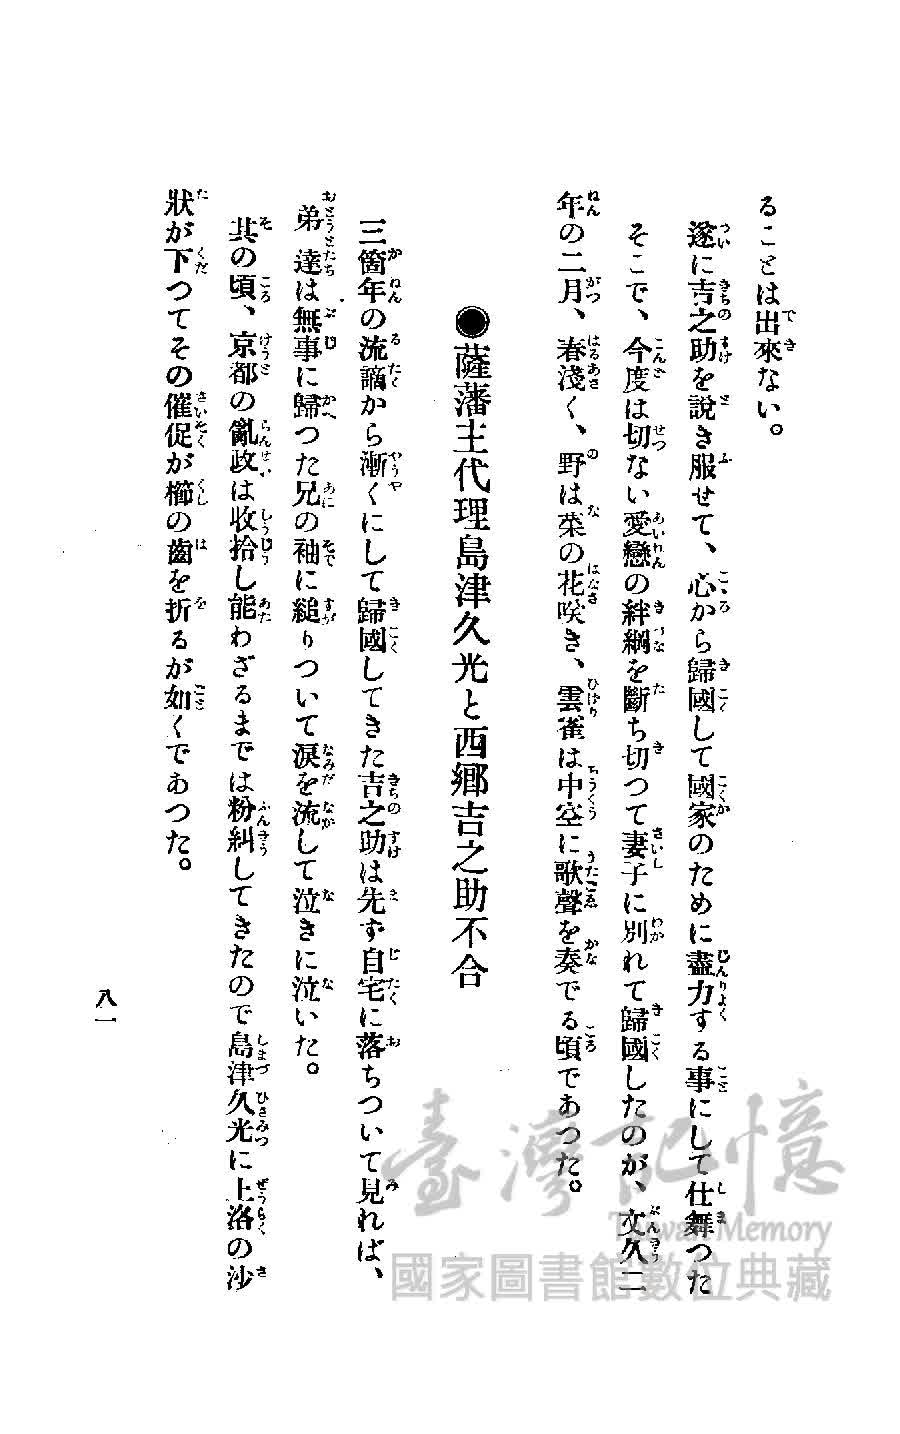 ることは出來ない。
遂に吉之助を説き服せて、心から歸國して國家のために盡力する事にして仕舞つた
そこで、今度は切ない愛戀の絆綱を斷ち切つて妻子に別れて歸國したのが、文久二
年の二月、春淺く、野は菜の花咲き、雲雀は中空に歌聲を奏でる頃であつた。
●薩藩主代理島津久光と西郷吉之助不合
三箇年の流謫から漸くにして歸國してきた吉之助は先ず自宅に落ちついて見れば、
弟達は無事に歸つた兄の袖に縋りついて涙を流して泣きに泣いた。
其の頃、京都の亂政は收拾し能わざるまでは粉糾してきたので島津久光に上洛の沙
狀が下つてその催促が櫛の齒を折るが如くであつた。
八一
臺灣記憶
Taiwan Memory
國家圖書館數位典藏